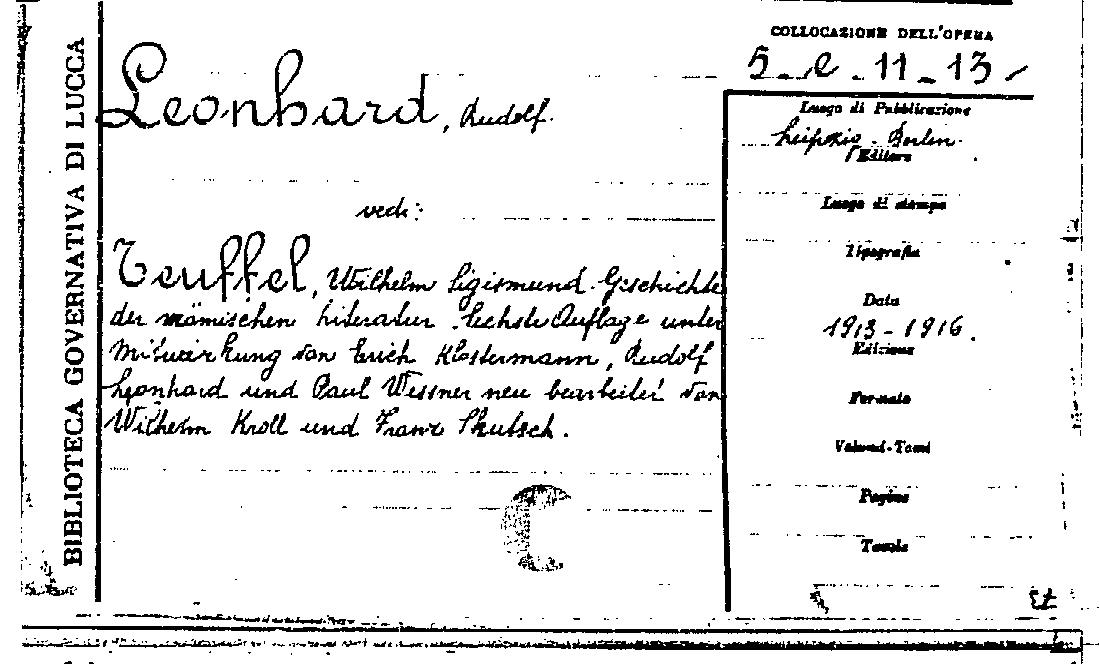 BIBLIOTECA GOVERNATIVA DI LUCCA
COLLOCAZIONE DELL'OPERA
5-e-11-13
Leonhard, Rudolf.
vedi:
Teuffel, Wilhelm Sigismund. Geschichte
der römischen Literatur. Sechste Auflage unter
Mitwirkung von Erich Klostermann, Rudolf
Leonhard und Paul Wessner neu bearbeitet von
Wilhelm Kroll und Franz Skutsch.
Luogo di Pubblicazione
Leipzig - Berlin.
Editore
Luogo di stampa
Tipografia
Data
1913-1916.
Edizione
Formato
Volumi-Tomi
Pagine
Tavole